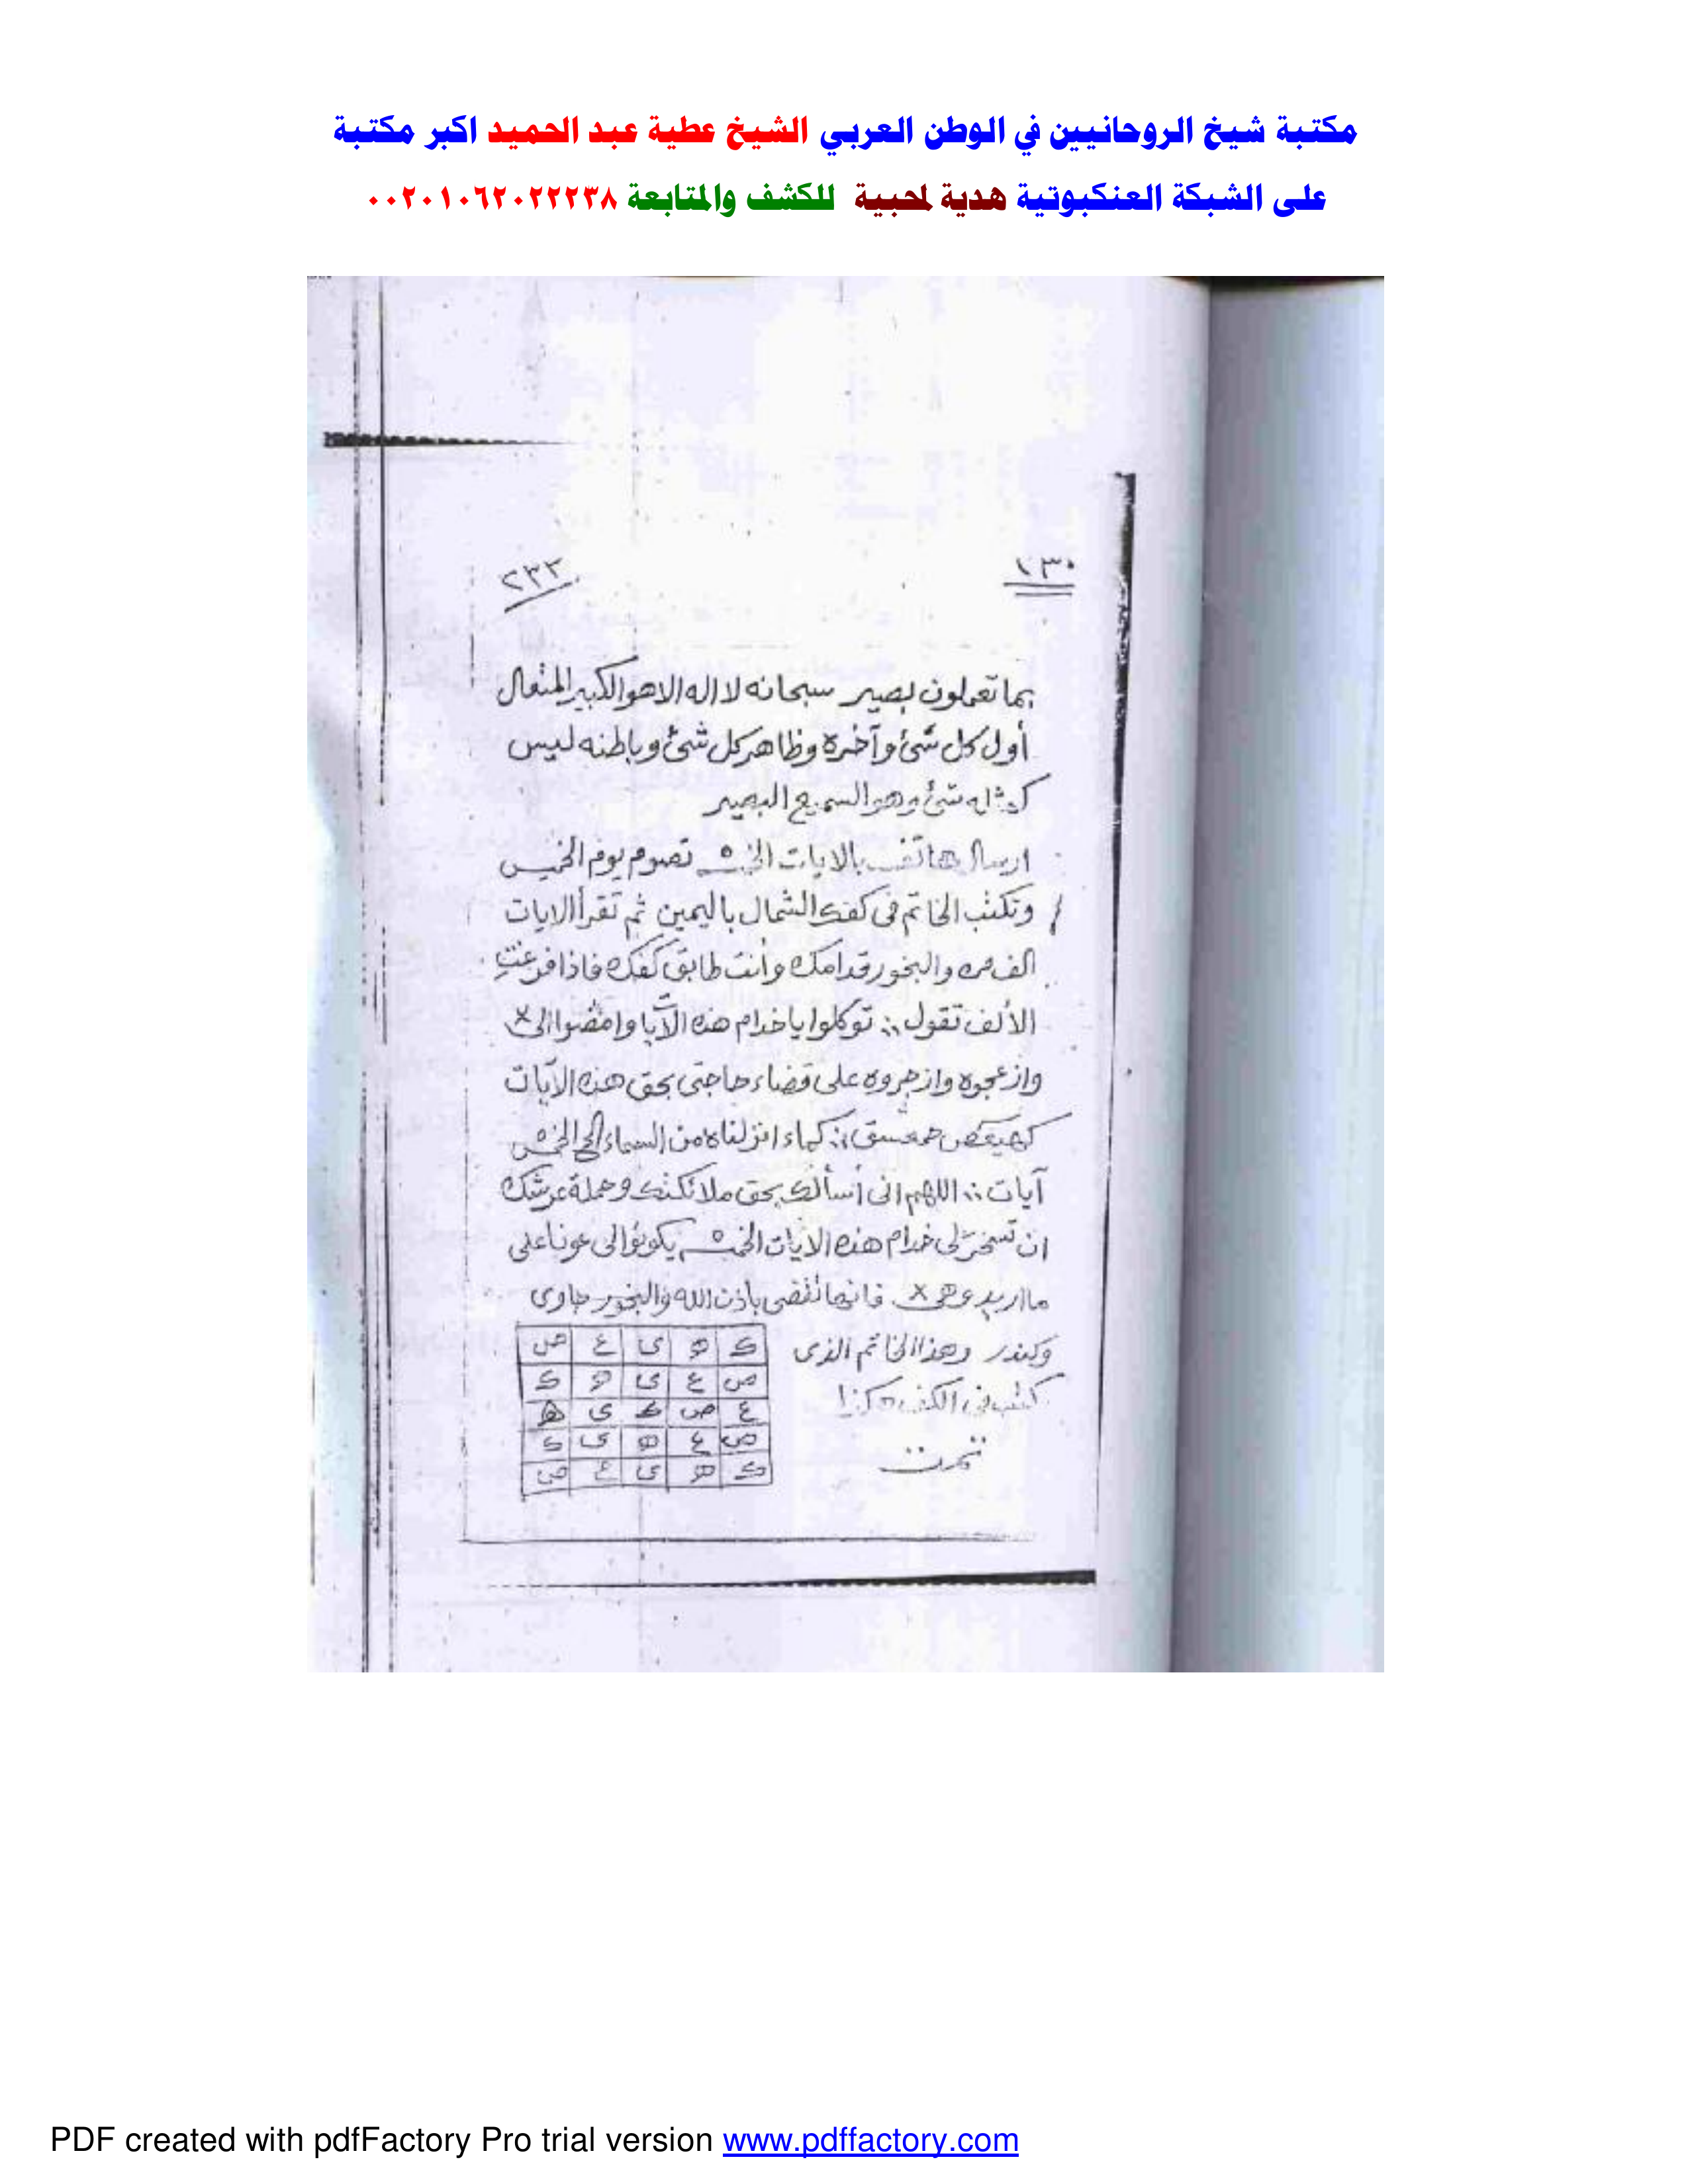 مكتبة شيخ الروحانيين في الوطن العربي الشيخ عطية عبد الحميد اكبر مكتبة
على الشبكة العنكبوتية هدية لمحبية للكشف والمتابعة ٠٠٢٠١٠٦٢٠٢٢٢٣٨
١٣٠ ٢٣٣
بما تعملون بصير سبحانه لا اله الا هو الكبير المتعال
أول كل شئ وآخره وظاهر كل شئ وباطنه ليس
كمثله شئ وهو السميع البصير
ارسال هاتف بالايات الخمسه تصوم يوم الخميس
وتكتب الخاتم فى كفك الشمال باليمين ثم تقرأ الايات
الف مره والبخور قدامك وأنت طابق كفك فاذا فرغت
الألف تقول ؛ توكلوا ياخدام هذه الآيات وامضوا الى ×
وازعجوه وازجروه على قضاء حاجتى بحق هذه الآيات
كهيعص حمعسق ؛ كماء انزلناه من السماء الخ الخمسه
آيات ؛ اللهم انى أسألك بحق ملائكتك وحملة عرشك
ان تسخر لى خدام هذه الايات الخمسه يكونوا لى عونا على
ما اريد وهى × فانها تقضى باذن الله والبخور جاوى
وكندر وهذا الخاتم الذى
كتب فى الكف هكذا
تمت
ك ه ى ع ص
ص ع ى ه ك
ع ص ك ى ه
ص ع ه ى ك
ك ه ى ع ص
PDF created with pdfFactory Pro trial version www.pdffactory.com